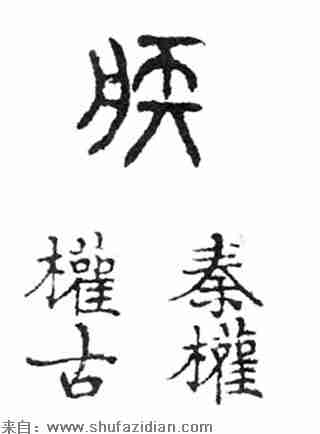 秦權
權古
来自：www.shufazidian.com